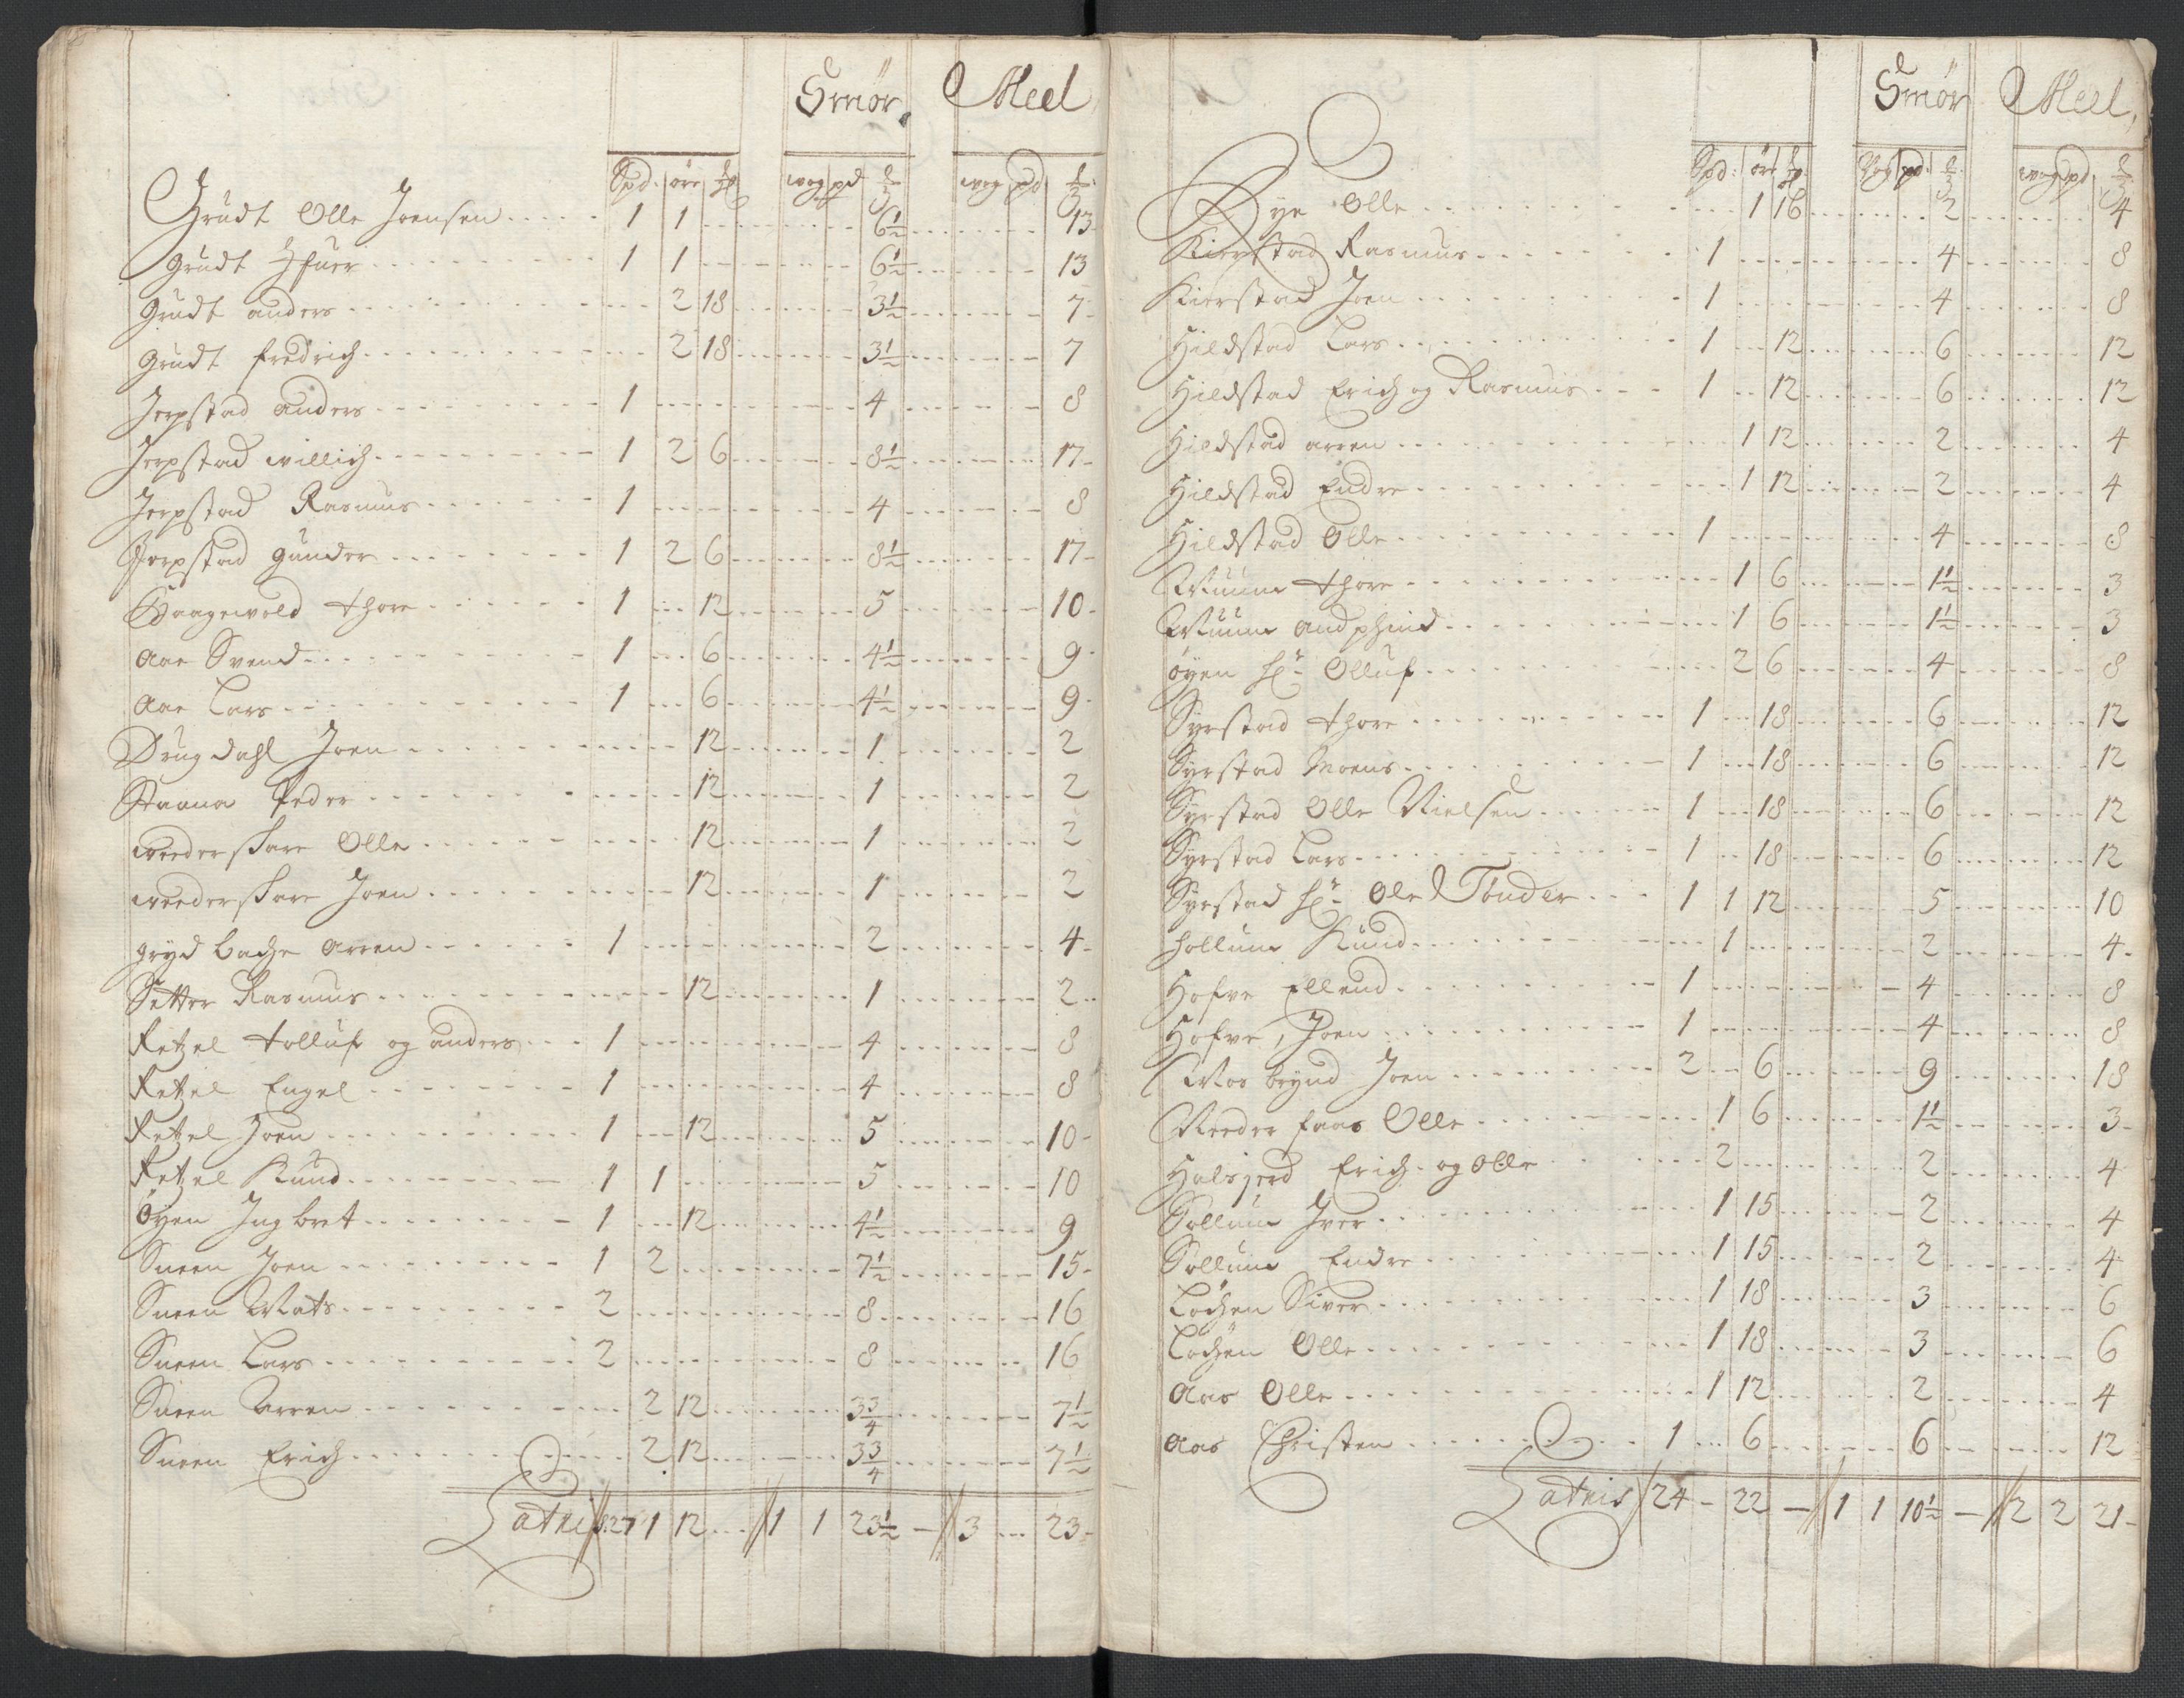 Smör. Meel
Spd. öre wog pd wog pd
Grudt Olle Joensen 1 1 6½ 13
Grudt Ifuer 1 1 6½ 13
Grudt anders 2 18 3½ 7
Grudt fredrich 2 18 3½ 7
Jerpstad anders 1 4 8
Jerpstad willich 1 2 6 8½ 17
Jerpstad Rasmus 1 4 8
Jerpstad gunder 1 2 6 8½ 17
Haagewold thore 1 12 5 10
Aae Svend 1 6 4½ 9
Aae Lars 1 6 4½ 9
Drugdahl Joen 12 1 2
Peder 12 1 2
wederskare Olle 12 1 2
wederskare Joen 12 1 2
gryd bache Arren 1 2 4
Setter Rasmus 12 1 2
Fetzel tolluf og anders 1 4 8
Fetzel Engel 1 4 8
Fetzel Joen 1 12 5 10
Fetzel Knud 1 1 5 10
Öyen Ingbret 1 12 4½ 9
Sneen Joen 1 2 7½ 15
Sneen Mats 2 8 16
Sneen Lars 2 8 16
Sneen Arren 2 12 3¾ 7½
Sneen Erich 2 12 3¾ 7½
Latris 27 1 12 1 1 23½ 3 23
Smör Meel
Spd. öre Wog pd wog pd
Bye Olle 1 16 2 4
Kierstad Rasmus 1 4 8
Kierstad Joen 1 4 8
Hildstad Lars 1 12 6 12
Hildstad Erich og Rasmus 1 12 6 12
Hildstad arren 1 12 2 4
Hildstad Endre 1 12 2 4
Hildstad Olle 1 4 8
Muum thore 1 6 1½ 3
Muum andphind 1 6 1½ 3
öyen hr Olluf 2 6 4 8
Syrstad thore 1 18 6 12
Syrstad Moens 1 18 6 12
Syrstad Olle Nielsen 1 18 6 12
Syrstad Lars 1 18 6 12
Syrstad hr Ole Tönder 1 1 12 5 10
hollum Knud 1 2 4
Hofve Ellend 1 4 8
Hofve, Joen 1 4 8
Mosbrynd Joen 2 6 9 18
Reeder faas Olle 1 6 1½ 3
Halsjerd Erich og Olle 2 2 4
Sollum Iver 1 15 2 4
Sollum Endre 1 15 2 4
Lochen Siver 1 18 3 6
Lochen Olle 1 18 3 6
Aas Olle 1 12 2 4
Aas Christen 1 6 6 12
Latris 24 - 22 - 1 1 10½ - 2 2 21